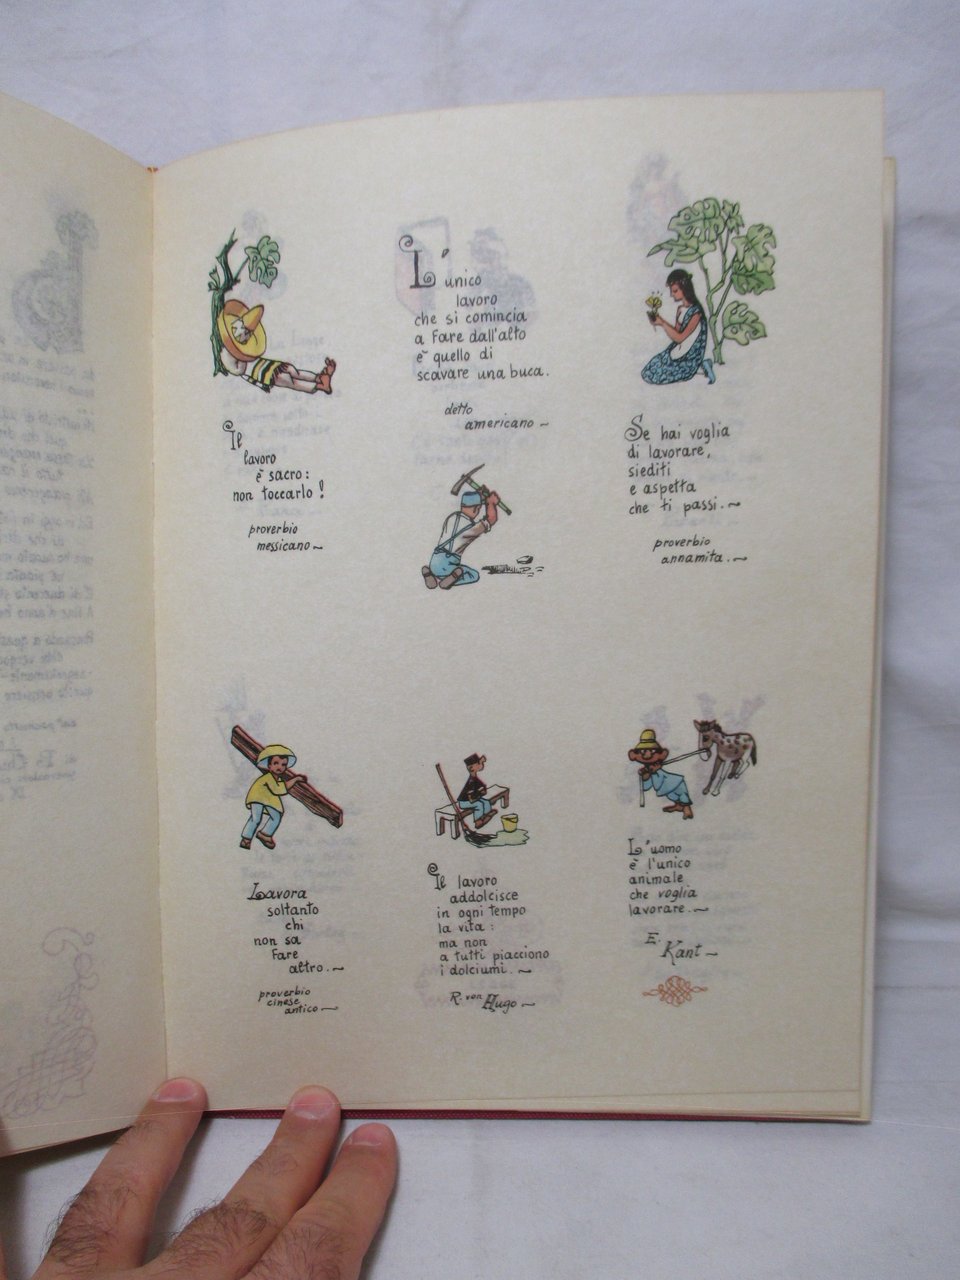 Il
lavoro
è sacro:
non toccarlo!
proverbio
messicano~
L'unico
lavoro
che si comincia
a fare dall'alto
è quello di
scavare una buca.
detto
americano~
Se hai voglia
di lavorare,
siediti
e aspetta
che ti passi.~
proverbio
annamita.~
Lavora
soltanto
chi
non sa
fare
altro.~
proverbio
cinese
antico~
Il lavoro
addolcisce
in ogni tempo
la vita:
ma non
a tutti piacciono
i dolciumi.~
R. von Hugo~
L'uomo
è l'unico
animale
che voglia
lavorare.~
E.
Kant~